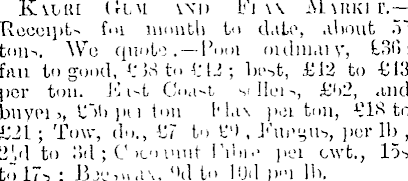 KAURI GUM AND FLAX MARKET.—
Receipts for month to date, about 5
tons. We quote.—Poor ordinary, £36;
fair to good, £38 to £42; best, £42 to £43
per ton. East Coast sellers, £62, and
buyers, £56 per ton Flax per ton, £18 to
£21; Tow, do., £7 to £9, Fungus, per lb,
2½d to 3d; Cocoanut Fibre per cwt., 15s
to 17s; Beeswax, 9d to 10d per lb.